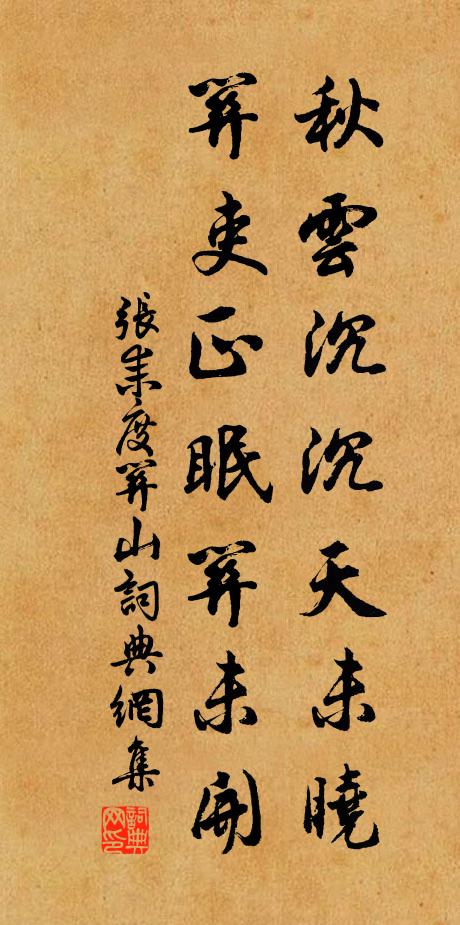 秋雲沉沉天未曉
關吏正眠關未開
張耒度關山詞典網集
詞典網印